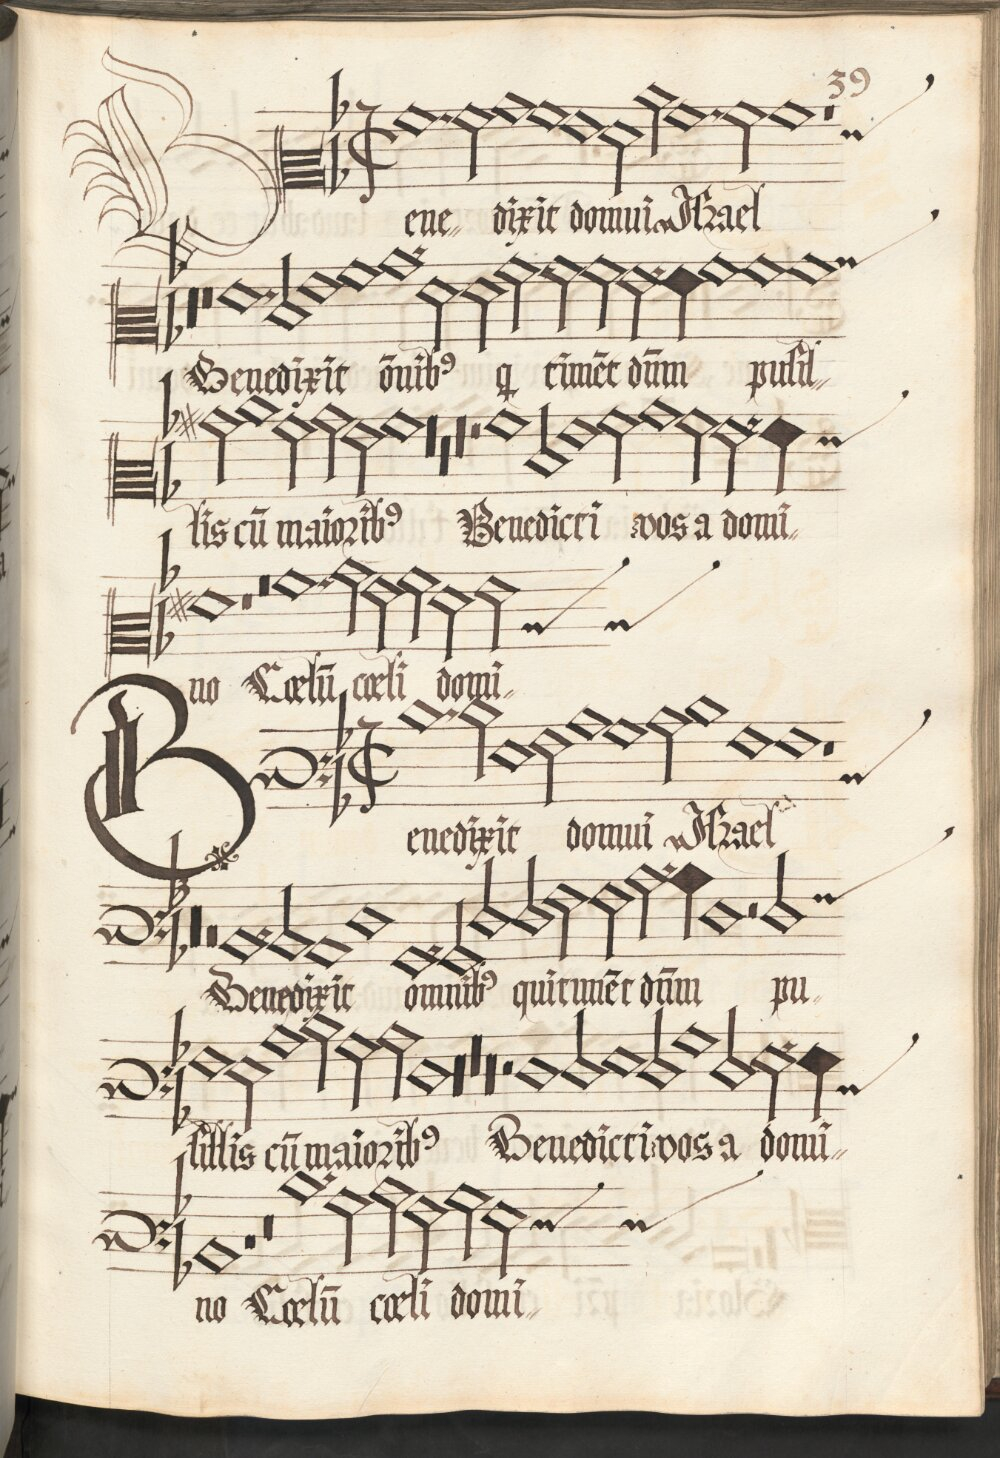 39
Bene„ dixit domui Israel
Benedixit õnibꝰ q timẽt dñm pusil„
lis cũ maioribꝰ Benedicti vos a domi„
no Cœlũ cœli domi„
Benedixit domui Israel
Benedixit omnibꝰ qui timẽt dñm pu„
sillis cũ maioribꝰ Benedicti vos a domi„
no Cœlũ cœli domi„